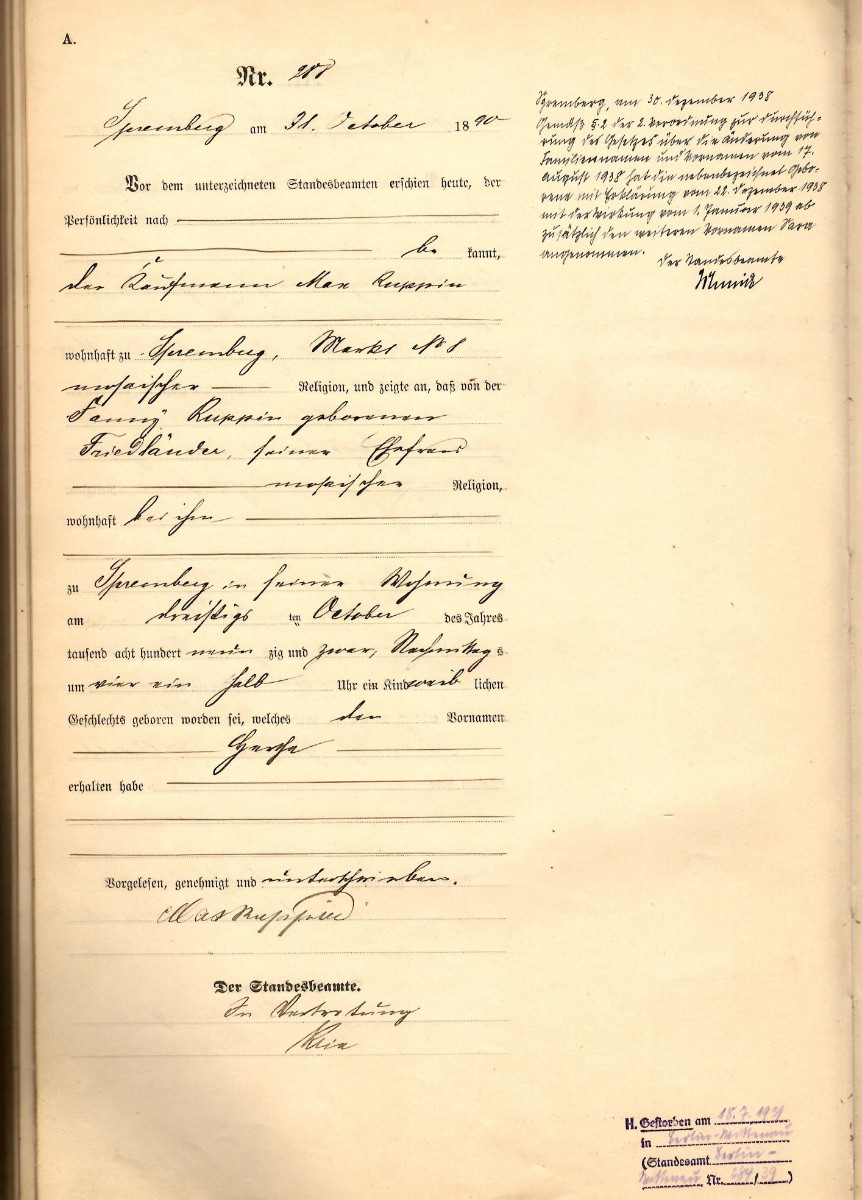 A.
Nr. 208
Spremberg am 31. October 1890
Vor dem unterzeichneten Standesbeamten erschien heute, der
Persönlichkeit nach
be kannt,
der Kaufmann Max Ruppin
wohnhaft zu Spremberg, Markt No 8
mosaischer Religion, und zeigte an, daß von der
Fanny Ruppin geborenen
Friedländer, seiner Ehefrau
mosaischer Religion,
wohnhaft bei ihm
zu Spremberg in seiner Wohnung
am dreißigs ten October des Jahres
tausend acht hundert neun zig und zwar, Nachmittag s
um vier ein halb Uhr ein Kind weib lichen
Geschlechts geboren worden sei, welches den Vornamen
Hertha
erhalten habe
Vorgelesen, genehmigt und unterschrieben.
Max Ruppin
Der Standesbeamte.
In Vertretung
Spremberg, am 30. Dezember 1938
Gemäß §.2 der 2. Verordnung zur Durchfüh-
rung des Gesetzes über die Änderung von
Familiennamen und Vornamen vom 17.
August 1938 hat die nebenbezeichnet Gebo-
rene mit Erklärung vom 22. Dezember 1938
mit der Wirkung vom 1. Januar 1939 ab
zusätzlich den weiteren Vornamen Sara
angenommen.
Der Standesbeamte
H. Gestorben am 18.7.1939
in Berlin-Wittenau
(Standesamt Berlin-
Wittenau Nr. /39)